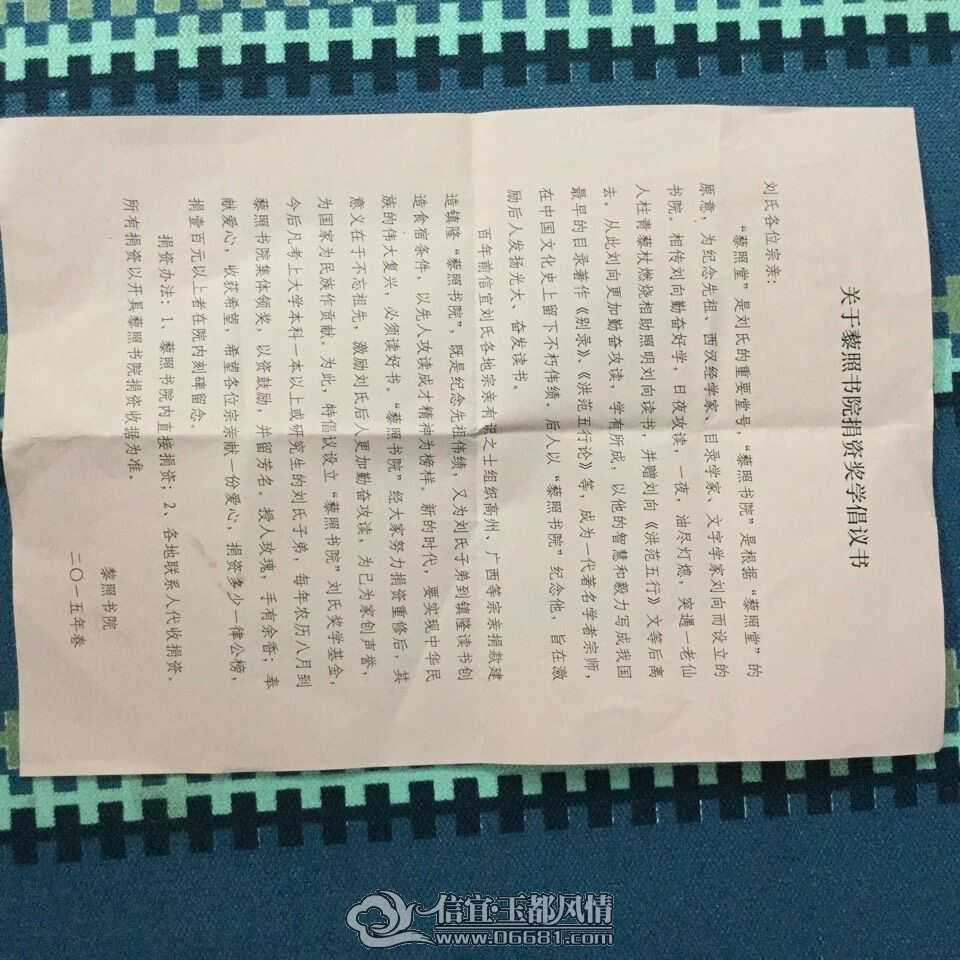 关于藜照书院捐资奖学倡议书
刘氏各位宗亲：
“藜照堂”是刘氏的重要堂号，“藜照书院”是根据“藜照堂”的
原意，为纪念先祖、西汉经学家、目录学家、文字学家刘向而设立的
书院。相传刘向勤奋好学，日夜攻读，一夜，油尽灯熄，突遇一老仙
人柱青藜杖燃烧相助照明刘向读书，并赠刘向《洪范五行》文等后离
去。从此刘向更加勤奋攻读，学有所成，以他的智慧和毅力写成我国
最早的目录著作《别录》、《洪范五行论》等，成为一代著名学者宗师，
在中国文化史上留下不朽伟绩。后人以“藜照书院”纪念他，旨在激
励后人发扬光大、奋发读书。
百年前信宜刘氏各地宗亲有识之士组织高州、广西等宗亲捐款建
造镇隆“藜照书院”，既是纪念先祖伟绩，又为刘氏子弟到镇隆读书创
造食宿条件，以先人攻读成才精神为榜样。新的时代，要实现中华民
族的伟大复兴，必须读好书。“藜照书院”经大家努力捐资重修后，其
意义在于不忘祖先，激励刘氏后人更加勤奋攻读，为己为家创声誉，
为国家为民族作贡献。为此，特倡议设立“藜照书院”刘氏奖学基金，
今后凡考上大学本科一本以上或研究生的刘氏子弟，每年农历八月到
藜照书院集体领奖，以资鼓励，并留芳名。授人玫瑰，手有余香；奉
献爱心，收获希望。希望各位宗亲献一份爱心，捐资多少一律公榜，
捐壹百元以上者在院内刻碑留念。
捐资办法：1、藜照书院内直接捐资；2、各地联系人代收捐资。
所有捐资以开具藜照书院捐资收据为准。
藜照书院
二〇一五年春
信宜·玉都风情
www.06681.com